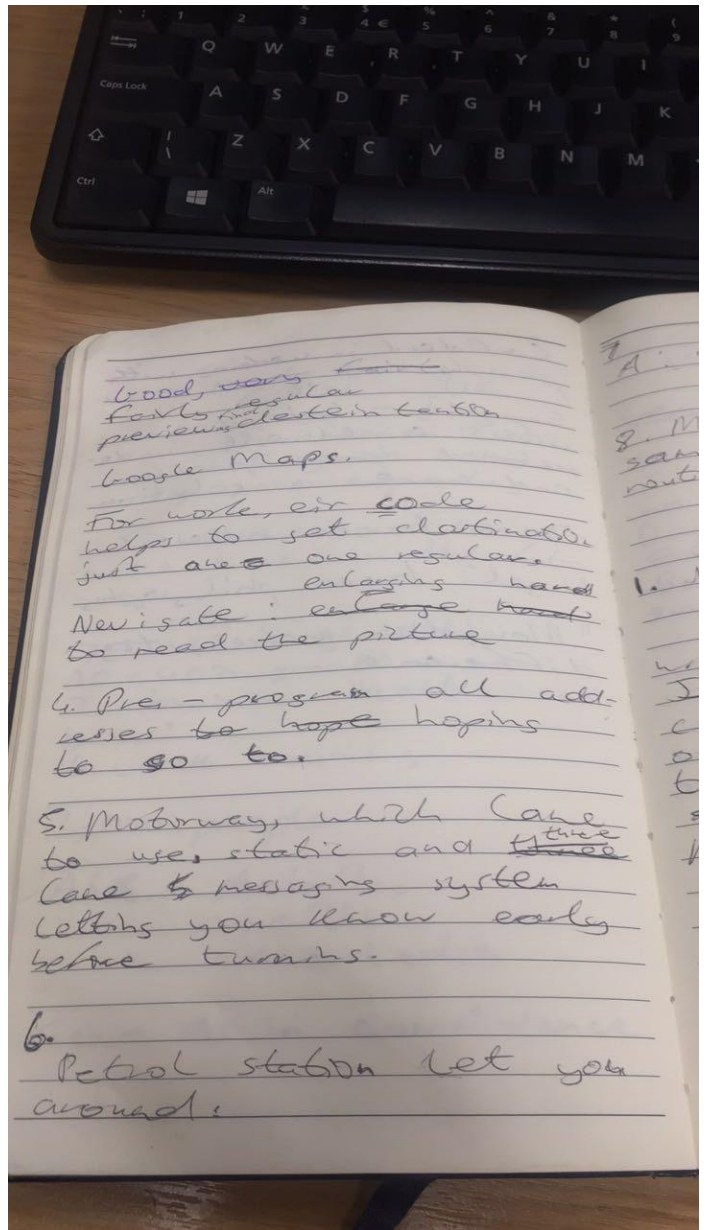 1 2 3 4 € 5 6 7 8 9
Q W E R T Y U I
Caps Lock A S D F G H J K
\ | Z X C V B N M
Ctrl Alt
Good, very
fairly regular
previewing final destein tention
Google Maps.
For work, eir code
helps to set
just one regular.
enlarging hard
Navigate : enlarge hard
to read the picture
4. Pre - program all add-
resses to hope hoping
to go to.
5. Motorway, which lane
to use, static and three three
lane messaging system
letting you know early
before turning.
6.
Petrol station let you
around.
7
A.
8. M
1.